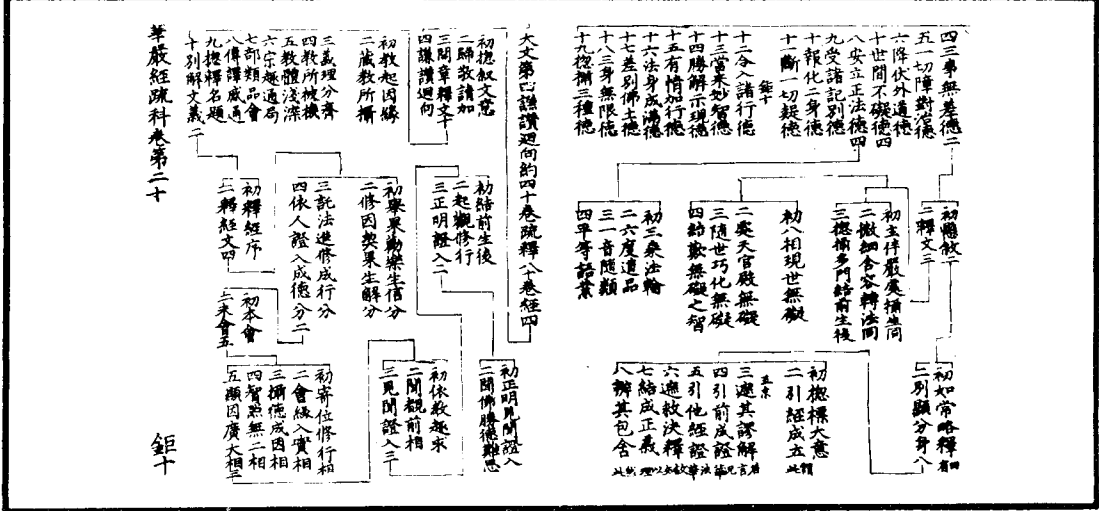 四三事無差德二
五一切障對治德
六降伏外道德
十世間不礙德四
八安立正法德四
九受諸記別德
十報化二身德
十一斷一切疑德
鉅十
十二令入諸行德
十三當來妙智德
十四勝解示現德
十五有情加行德
十六法身成滿德
十七差別佛土德
十八三身無限德
十九揔攝三種德
初懸敘二
二釋文三
初主伴嚴處攝生同
二微細含容轉法同
三揔攝多門結前生後
初八相現世無礙
二處天宮殿無礙
三隨世巧化無礙
四結歎無礙之智
初三乘法輪
二六度道品
三一音隨類
四平等語業
初如常略釋
二別顯分身八
初揔標大意
二引經成立
三遮其謬解
四引前成證
五引他經證
六遮救決釋
七結成正義
八辨其包含
大文第四謙讚迴向約四十卷疏釋八十卷經四
初揔叙文意
二歸敬請加
三開章釋文十
四謙讚迴向
初教起因緣
二藏教所攝
三義理分齊
四教所被機
五教體淺深
六宗趣通局
七部類品會
八傳譯感通
九揔釋名題
十別解文義二
初結前生後
二起觀修行
三正明證入二
初舉果勸樂生信分
二修因契果生解分
三託法進修成行分
四依人證入成德分二
初釋經序
二釋經文四
初本會
二末會五
初正明見聞證入
二聞佛勝德難思
初依教趣求
二聞觀前相
三見聞證入三
初寄位修行相
二會緣入實相
三攝德成因相
四智照無二相
五顯因廣大相三
華嚴經疏科卷第二十
鉅十